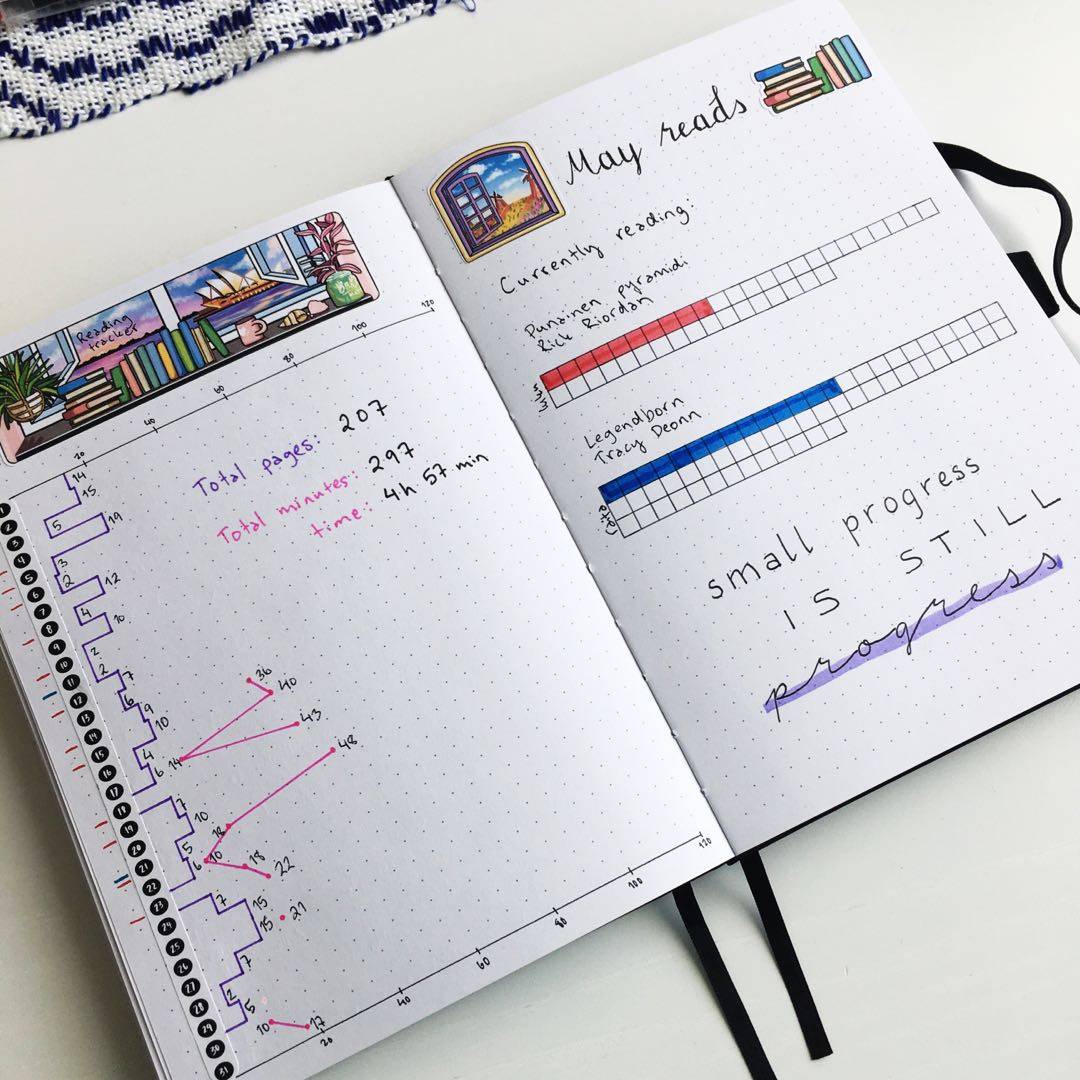 Reading
tracker
20
40
60
80
100
120
Total pages: 207
Total minutes: 297
time: 4h 57 min
1
2
3
4
5
6
7
8
9
10
11
12
13
14
15
16
17
18
19
20
21
22
23
24
25
26
27
28
29
30
31
14
15
5
19
3
2
12
4
10
2
2
7
6
9
10
4
6
7
10
5
6
7
15
15
7
2
5
36
40
14
43
48
18
10
18
22
21
10
17
20
40
60
80
100
120
May reads
Currently reading:
Punainen pyramidi
Rick Riordan
Legendborn
Tracy Deonn
small progress
IS STILL
progress